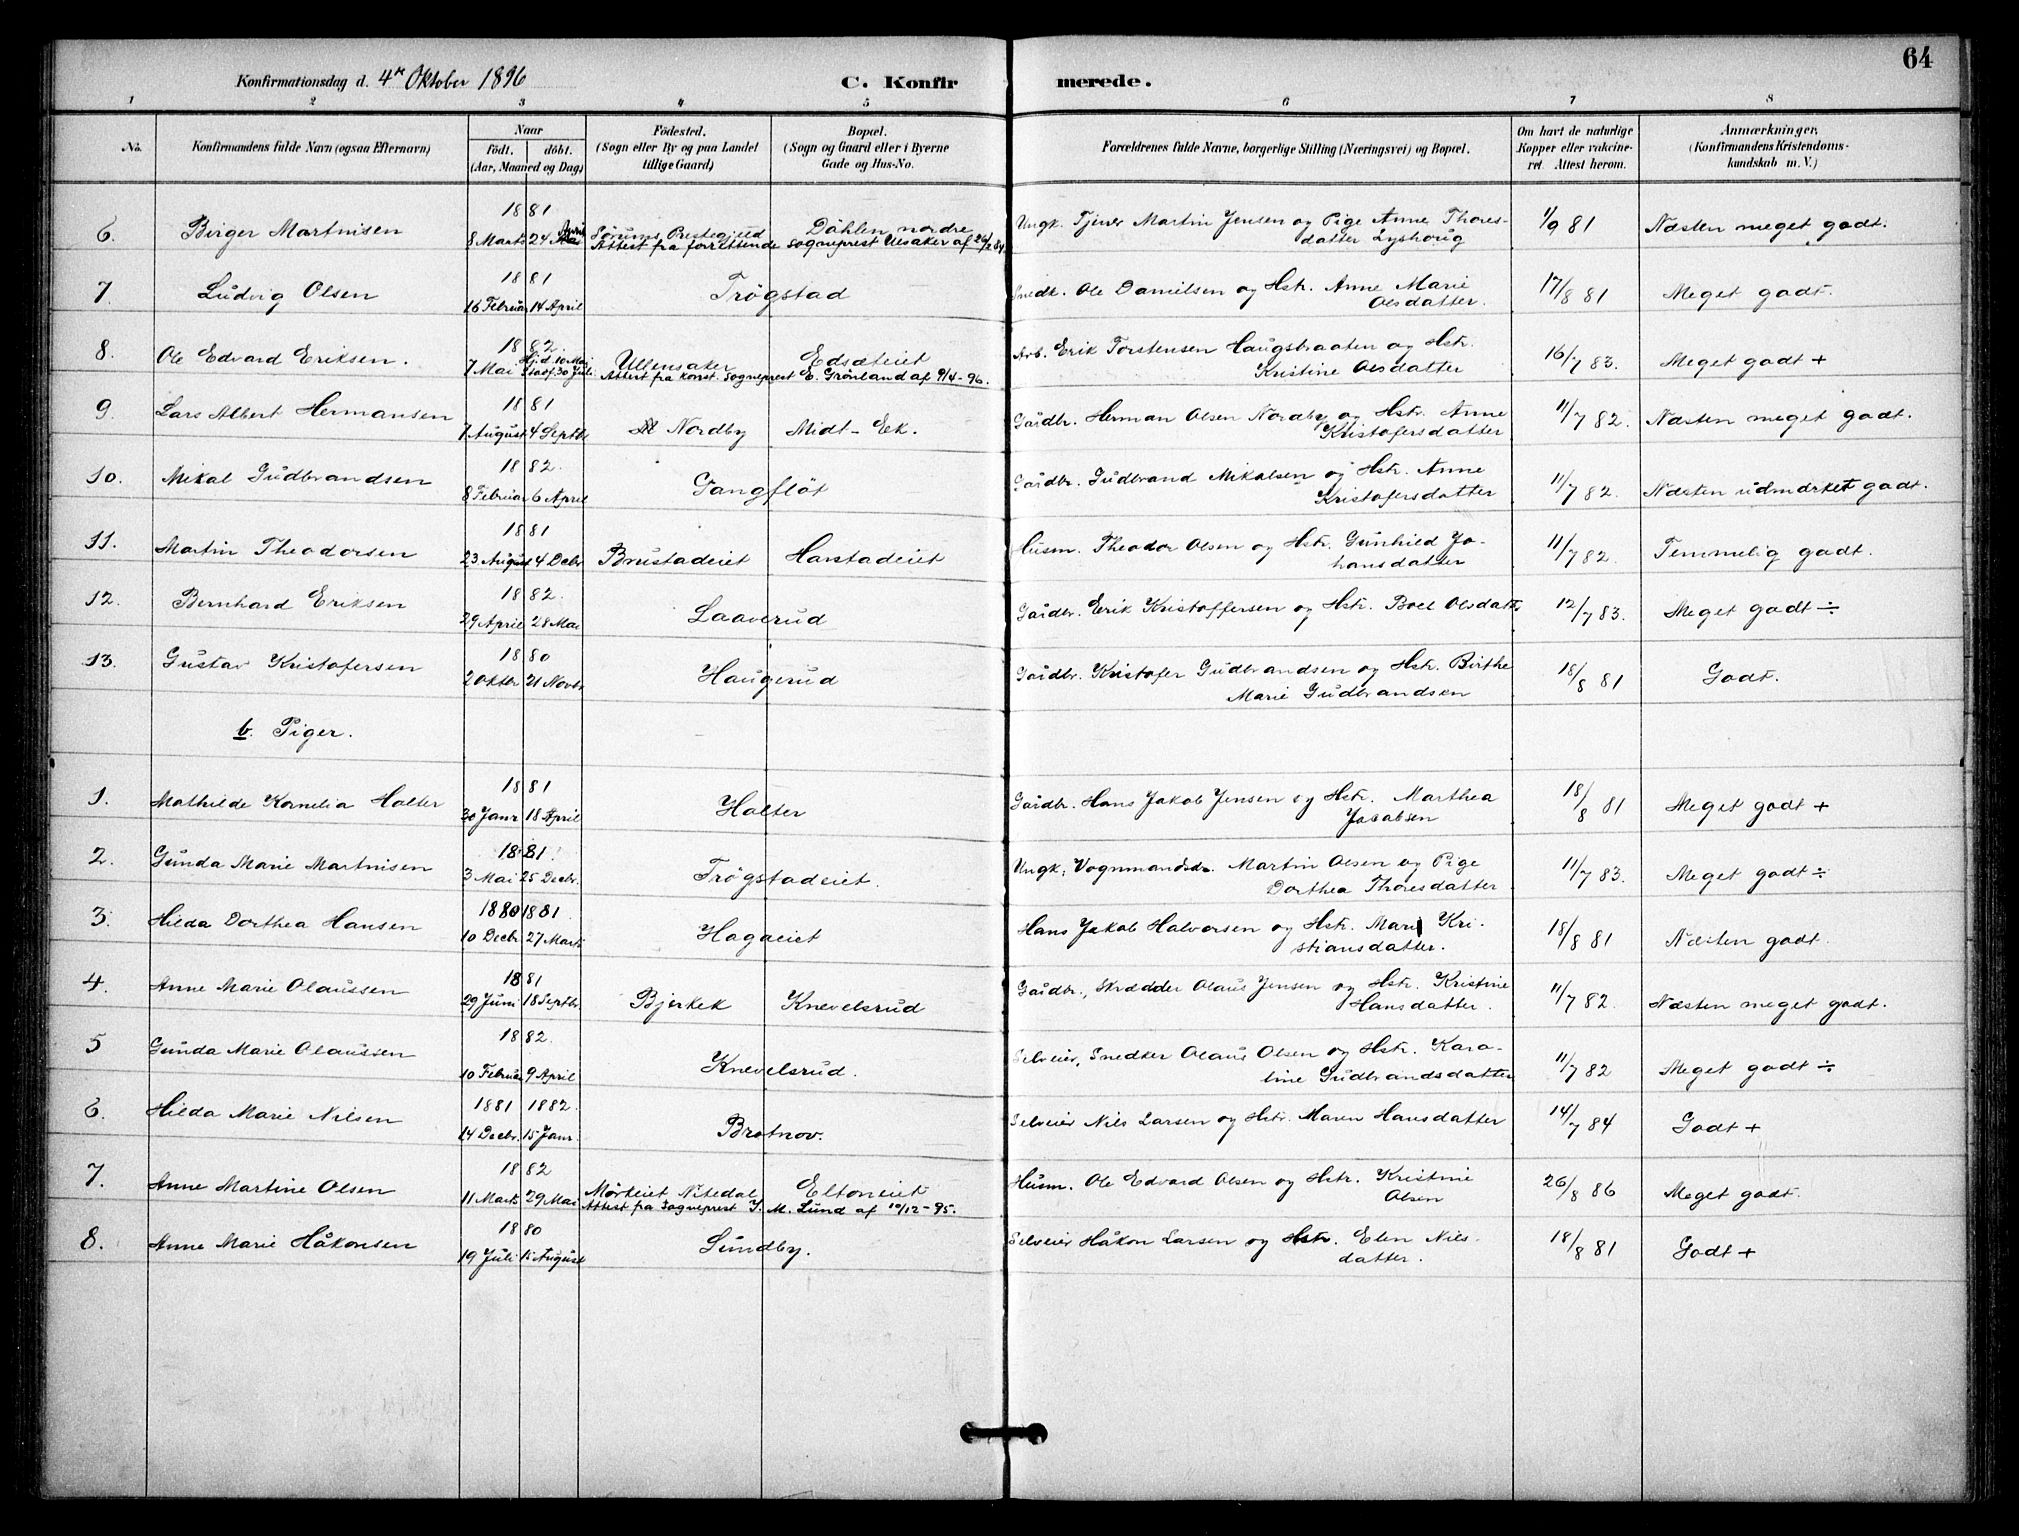 64
Konfirmationsdag d. 4de Oktober 1896
C. Konfirmerede.
1 2 3 4 5 6 7 8
No. Konfirmandens fulde Navn (ogsaa Efternavn) Naar födt. döbt. (Aar, Maaned og Dag) Födested. (Sogn eller By og paa Landet tillige Gaard) Bopæl. (Sogn og Gaard eller i Byerne Gade og Hus-No. Forældrenes fulde Navne, borgerlige Stilling (Næringsvei) og Bopæl. Om havt de naturlige Kopper eller vakcineret. Attest herom. Anmærkninger, (Konfirmandens Kristendomskundskab m. V.)
6. Birger Martinisen 1881 8 Marts 24 April Sørums Prestegjeld Dahlen nordre Ungk. Tjener Martin Jensen og Pige Anne Thoresdatter Lyshoug 1/9 81 Næsten meget godt.
Attest fra forrettende Sogneprest Ulsaker af
7 Ludvig Olsen 1881 16 Februar 14 April Trögstad Snedk. Ole Danielsen og Hstr. Anne Marie Olsdatter. 17/8 81 Meget godt.
8. Ole Edvard Eriksen. 1882. 7 Mai Hjd. 10 Mai Stadf. 30 Juli Ullensaker Edsæteiet Arb. Erik Torstensen Haugsbraaten og Hstr. Kristine Olsdatter 16/7 83. Meget godt +
Attest fra konst. Sogneprest E. Grönland af 9/4-96.
9. Lars Albert Hermansen 1881 7 August 4 Septbr Nordby Midt-Ek. Gårdbr. Herman Olsen Nordby og Hstr. Anne Kristofersdatter 11/7 82. Næsten meget godt.
10. Mikal Gudbrandsen 1882. 8 Februar 6 April Gangflöt Gårdbr. Gudbrand Mikalsen og Hstr. Anne Kristofersdatter 11/7 82. Næsten udmærket godt.
11. Martin Theodorsen 1881 23 August 4 Decbr Brustadeiet Harstadeiet Husm. Theodor Olsen og Hstr. Gunhild Johansdatter 11/7 82. Temmelig godt.
12. Bernhard Eriksen 1882. 29 April 28 Mai Laaverud Gårdbr. Erik Kristoffersen og Hstr. Boel Olsdatt. 12/7 83. Meget godt ÷
13. Gustav Kristofersen 1880 2 Oktbr 21 Novbr Haugerud Gårdbr. Kristofer Gudbrandsen og Hstr. Birthe Marie Gudbrandsen 18/8 81 Godt.
b. Piger.
1. Mathilde Kornelia Holter 1881 30 Janr 18 April Holter Gårdbr. Hans Jakob Jensen og Hstr. Marthea Jacobsen 18/8 81 Meget godt +
2. Gunda Marie Martinisen 1881. 3 Mai 25 Decbr. Trögstadeiet. Ungk. Vognmandsdr. Martin Olsen og Pige Dorthea Thoresdatter 11/7 83. Meget godt ÷
3. Hilda Dorthea Hansen 1880 1881 10 Decbr. 27 Marts Hagaeiet Hans Jakob Halvorsen og Hstr. Mari Kristiansdatter. 18/8 81 Næsten godt.
4. Anne Marie Olaussen 1881 29 Juni 18 Septbr. Bjerkek Knevelsrud Gårdbr., Skrædder Olaus Jensen og Hstr. Kristine Hansdatter. 11/7 82 Næsten meget godt.
5 Gunda Marie Olaussen 1882. 10 Februar 9 April Knevelsrud. Selveier, Snedker Olaus Olsen og Hstr. Karoline Gudbrandsdatter 11/7 82 Meget godt ÷
6. Hilda Marie Nilsen 1881 1882. 14 Decbr. 15 Janr. Brotnov. Selveier Nils Larsen og Hstr. Maren Hansdatter 14/7 84 Godt +
7. Anne Martine Olsen 1882 11 Marts 29 Mai Mörteiet Nitedal Eltoneiet Husm. Ole Edvard Olsen og Hstr. Kristine Olsen 26/8 86 Meget godt.
Attest fra Sogneprest J. M. Lund af 10/12-95.
8. Anne Marie Håkonsen 1880 19 Juli 15 August Lundby. Selveier Håkon Larsen og Hstr. Elen Nilsdatter. 18/8 81 Godt +